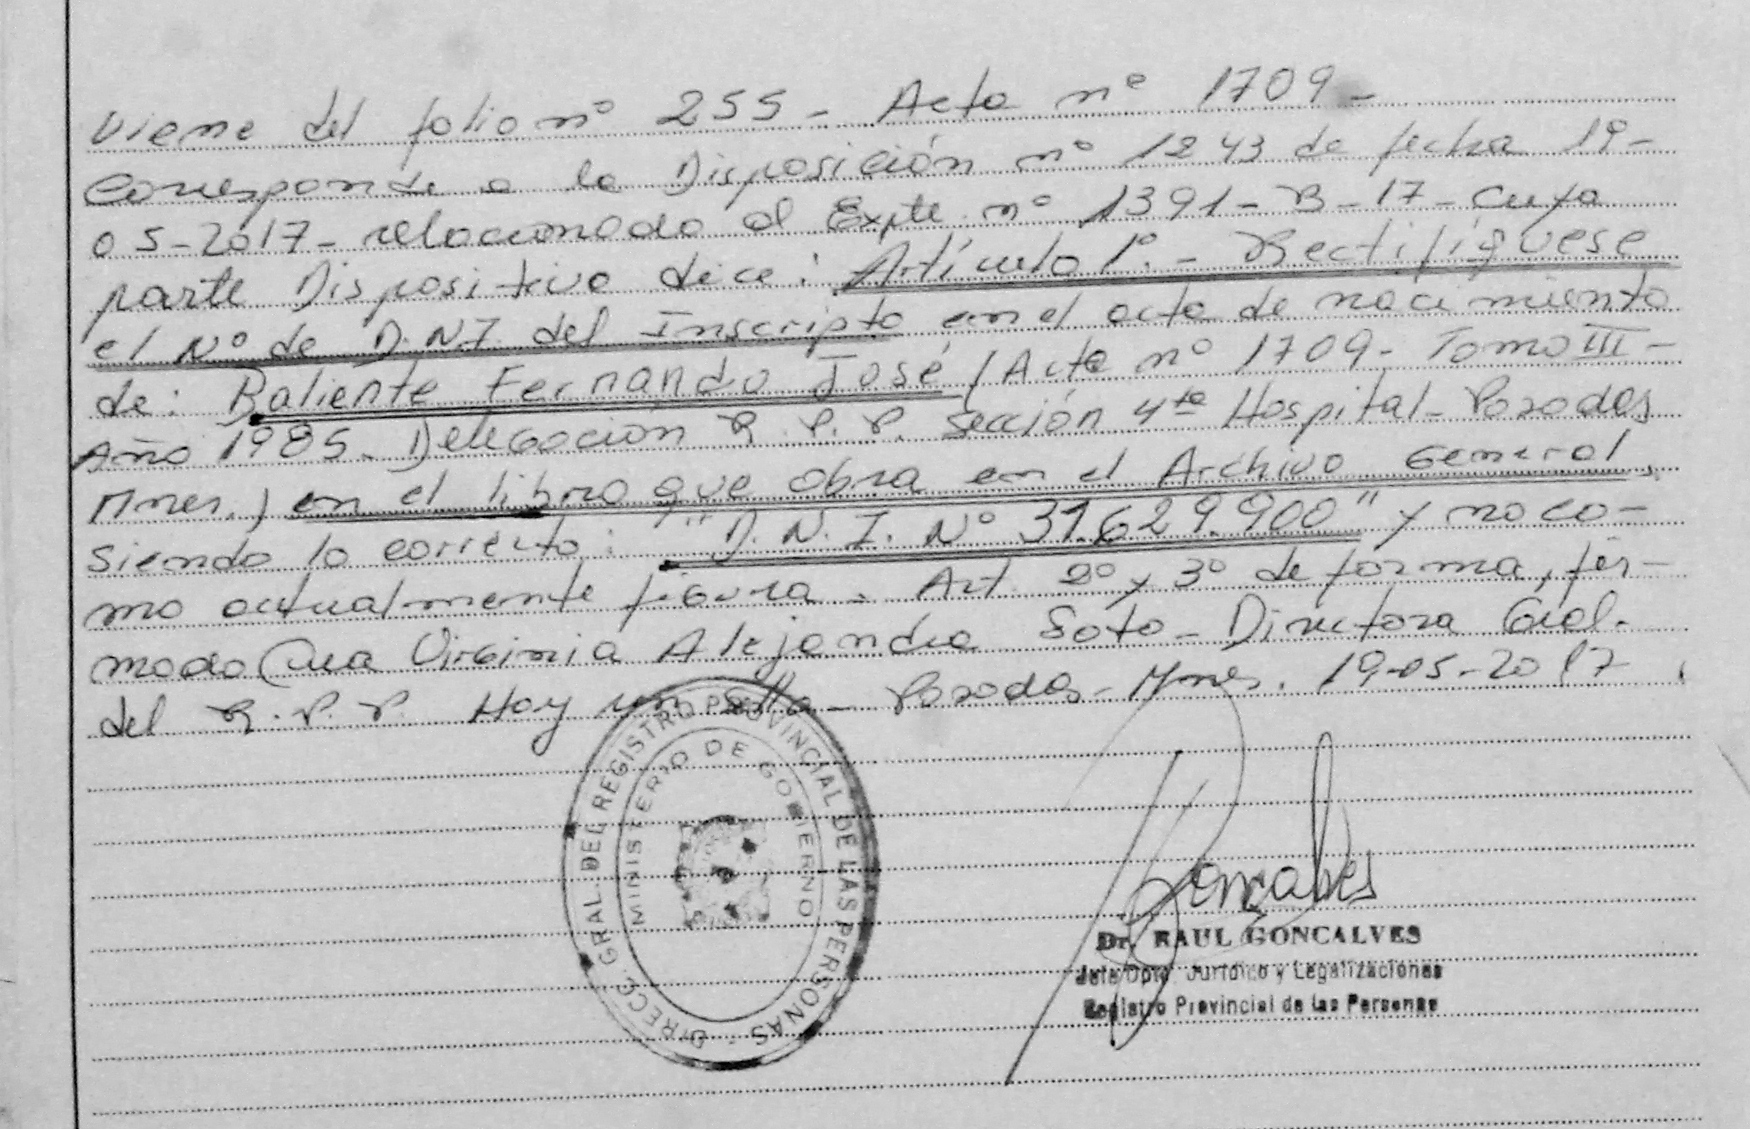 Viene del folio nº 255 - Acta nº 1709 -
Corresponde a la Disposición nº 1243 de fecha 19-
05-2017- relacionada al Expte nº 1391-B-17- cuya
parte Dispositiva dice: Artículo 1º.- Rectifíquese
el Nº de D.N.I. del Inscripto en el acta de nacimiento
de: Baliente Fernando José (Acta nº 1709- Tomo III -
Año 1985. Delegación R.P.P. Sección 4ta Hospital- Posadas
Mnes.) en el libro que obra en el Archivo General,
siendo lo correcto: "D.N.I. Nº 31.629.900" y no co-
mo actualmente figura. Art. 2º y 3º de forma, fir-
mado Ana Virginia Alejandra Soto- Directora Gral.
del R.P.P. Hay un sello- Posadas- Mnes. 19-05-2017
DIRECC. GRAL. DEL REGISTRO PROVINCIAL DE LAS PERSONAS -
MINISTERIO DE GOBIERNO
Goncalves
Dr. RAUL GONCALVES
Jefe Dpto. Jurídico y Legalizaciones
Registro Provincial de las Personas